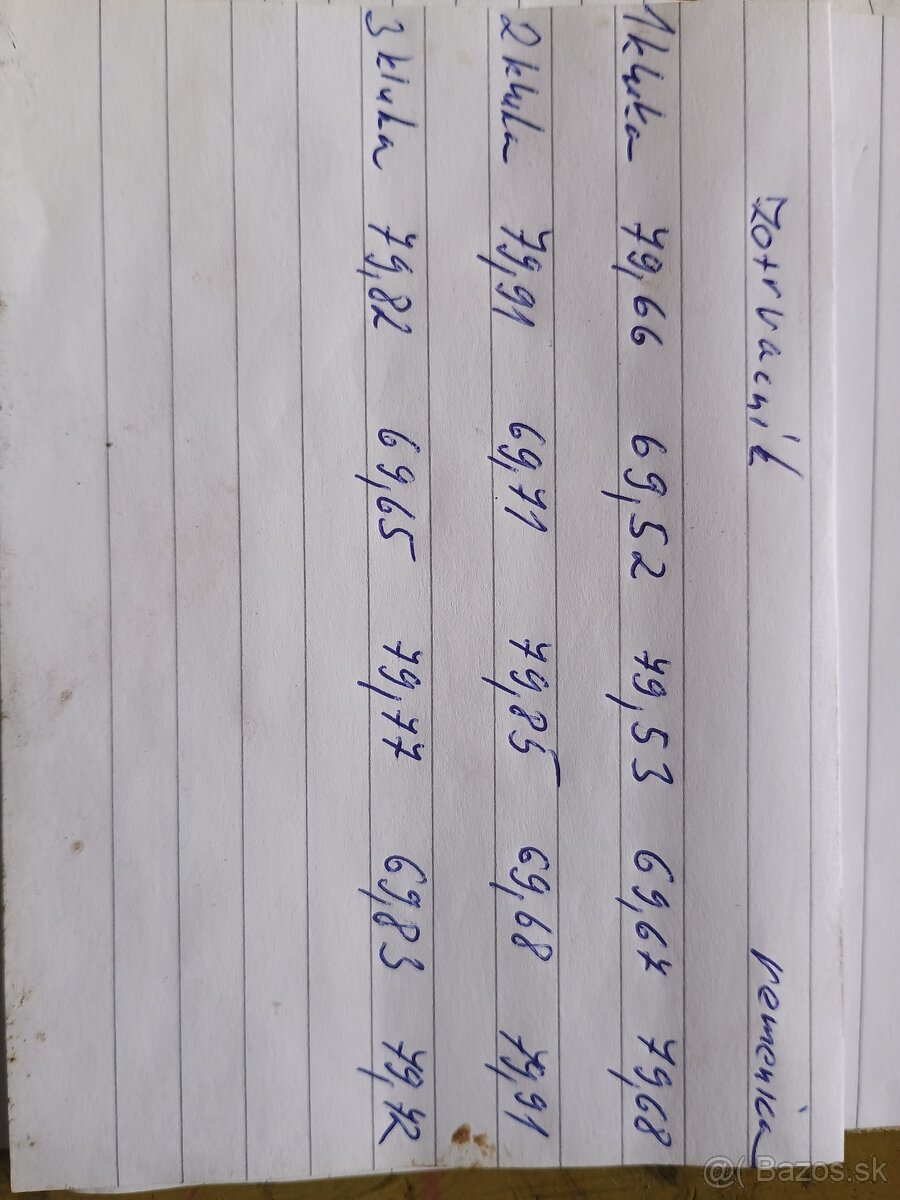 zotrvacnik remenica
1 kluka 79,66 69,52 79,53 69,67 79,68
2 kluka 79,91 69,71 79,85 69,68 79,91
3 kluka 79,82 69,65 79,77 69,83 79,72
@( Bazos.sk